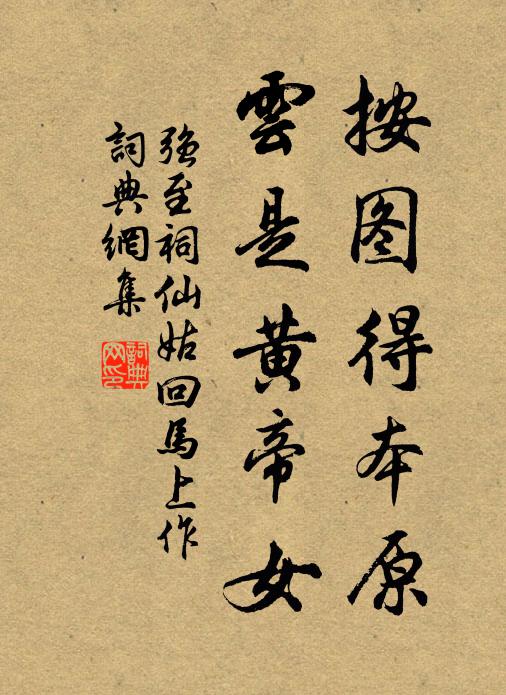 按图得本原
雲是黃帝女
強至祠仙姑回馬上作
詞典網集
詞典网印